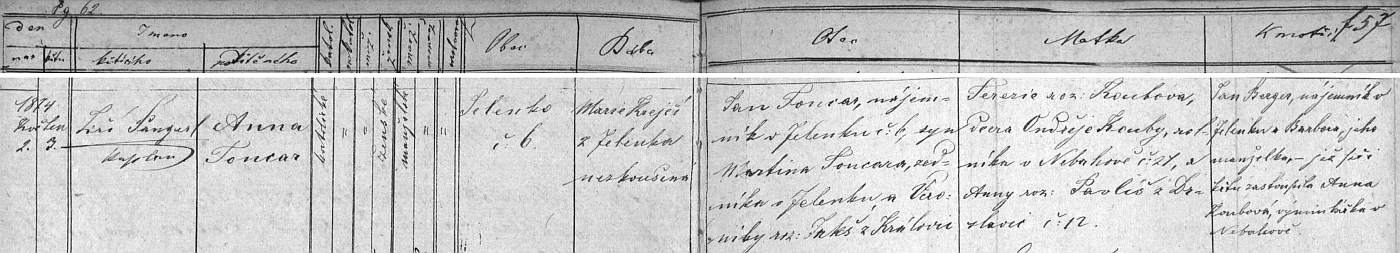 Pg. 62. 57
den Jmeno Obec Bába Otec Matka Kmotři
křtícího pokřtěného
1874
Květen
2. 3.
Kaplan
Anna
Toncar
katolické
ženské
manželské
Jelenko
č. 6.
Marie Krejčí
z Jelenka
nezkoušená
Jan Toncar, nájem-
ník v Jelenku č. 6, syn
Martina Toncara, sed-
níka v Jelenku, a Vero-
niky roz: Jakš z Královic
Terezie roz: Koubova,
dcera Ondřeje Kouby, rol-
níka v Nebahově č. 21, a
Anny roz: Pavlíč z
č. 12.
Jan Berger, nájemník v
Jelenku a Barbora, jeho
manželka, – již při
křtu zastoupila Anna
Koubová, výminkářka v
Nebahově.